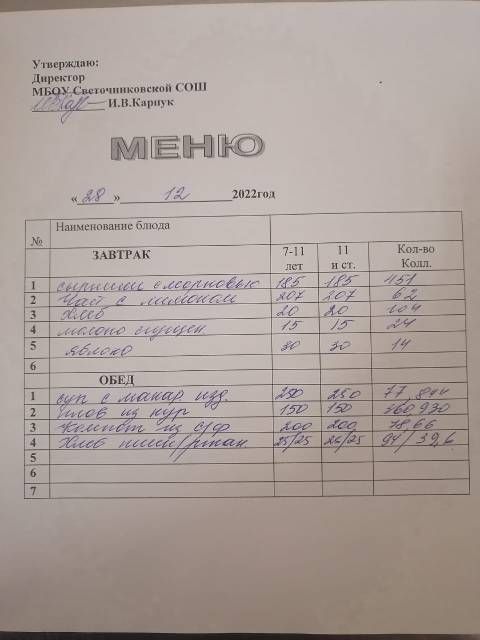 Утверждаю:
Директор
МБОУ Светочниковской СОШ
И.В.Карпук
МЕНЮ
«28» 12 2022год
№ Наименование блюда
ЗАВТРАК 7-11 лет 11 и ст. Кол-во Колл.
1 сырники с морковью 185 185 451
2 Чай с лимоном 207 207 62
3 Хлеб 20 20 104
4 молоко сгущен 15 15 24
5 яблоко 30 30 14
6
ОБЕД
1 суп с макар изд. 250 250 77,844
2 плов из кур 150 150 460,930
3 Компот из с/ф 200 200 78,66
4 Хлеб пшен/ржан 25/25 25/25 94/39,6
5
6
7